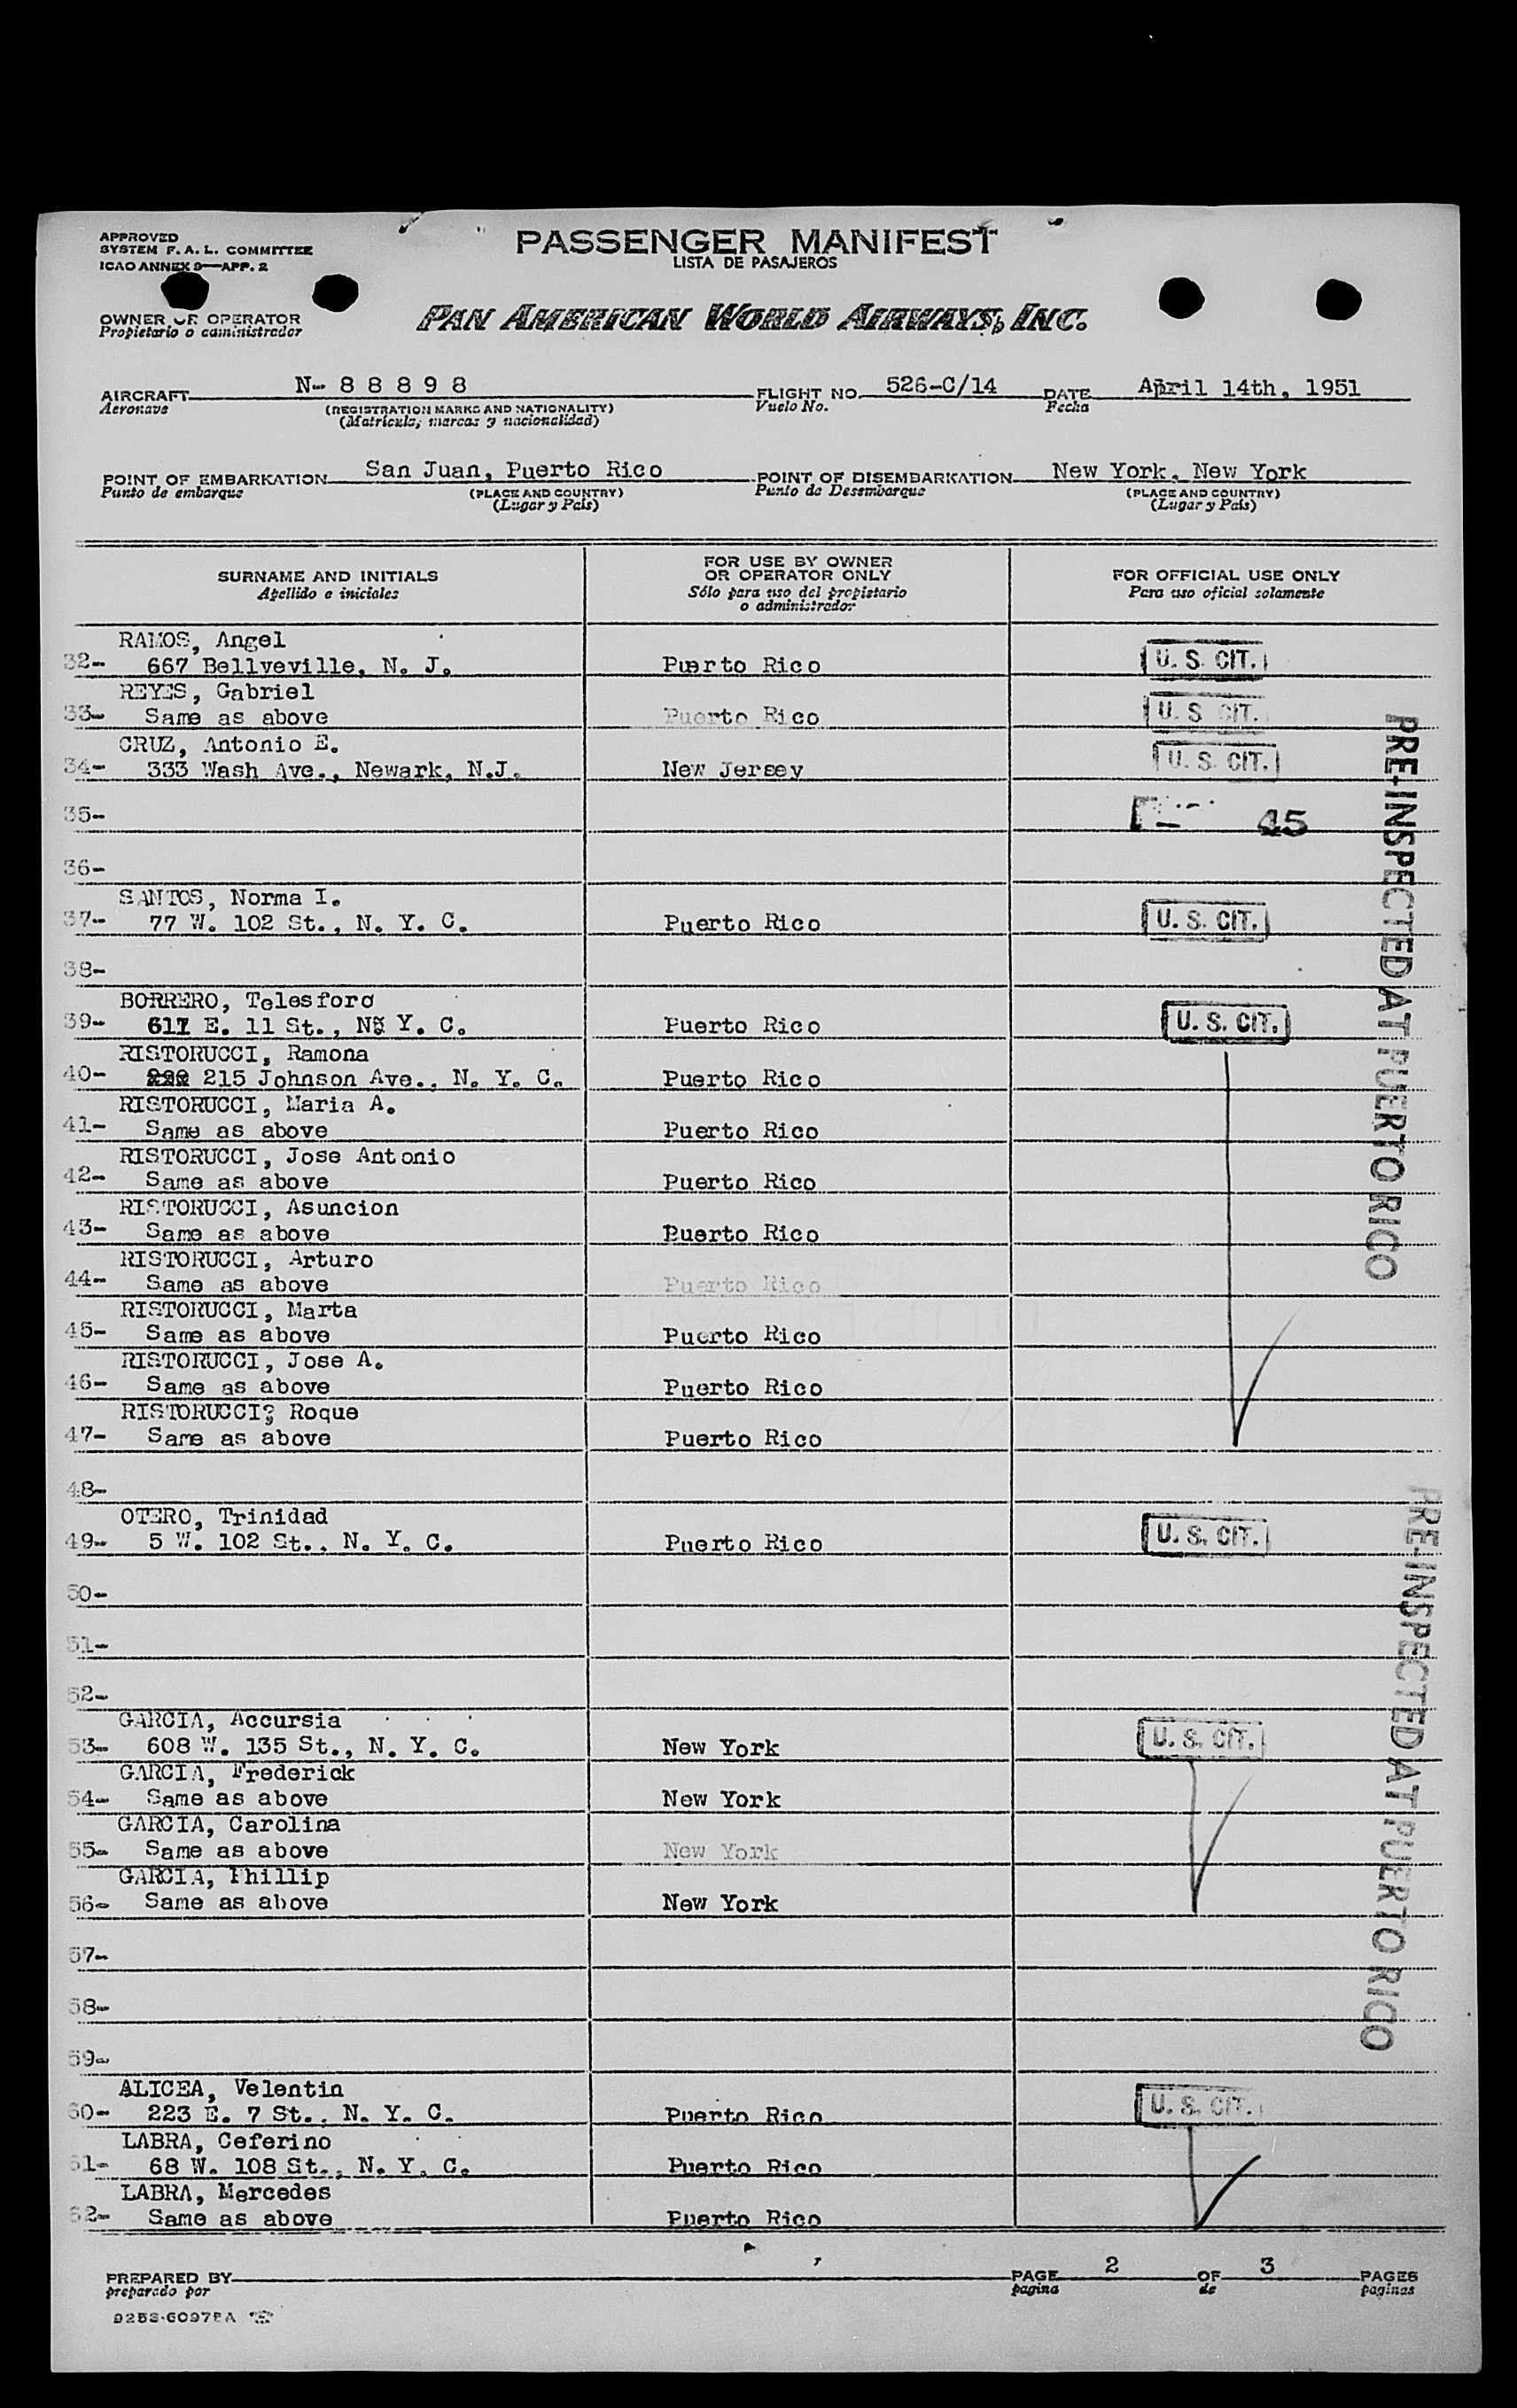 APPROVED
SYSTEM F. A. L. COMMITTEE
ICAO ANNEX 9—APP. 2
PASSENGER MANIFEST
LISTA DE PASAJEROS
OWNER OR OPERATOR
Propietario o administrador
PAN AMERICAN WORLD AIRWAYS, INC.
AIRCRAFT N- 8 8 8 9 8 FLIGHT NO. 526-C/14 DATE April 14th, 1951
Aeronave (REGISTRATION MARKS AND NATIONALITY) Vuelo No. Fecha
(Matricula, marcas y nacionalidad)
POINT OF EMBARKATION San Juan, Puerto Rico POINT OF DISEMBARKATION New York, New York
Punto de embarque (PLACE AND COUNTRY) Punto de Desembarque (PLACE AND COUNTRY)
(Lugar y País) (Lugar y País)
SURNAME AND INITIALS
Apellido e iniciales
FOR USE BY OWNER
OR OPERATOR ONLY
Sólo para uso del propietario
o administrador
FOR OFFICIAL USE ONLY
Para uso oficial solamente
RAMOS, Angel
32- 667 Bellveville, N. J. Puerto Rico U. S. CIT.
REYES, Gabriel
33- Same as above Puerto Rico U. S. CIT.
CRUZ, Antonio E.
34- 333 Wash Ave., Newark, N.J. New Jersey U. S. CIT.
35- 45
36-
SANTOS, Norma I.
37- 77 W. 102 St., N. Y. C. Puerto Rico U. S. CIT.
38-
BORRERO, Telesford
39- 611 E. 11 St., N. Y. C. Puerto Rico U. S. CIT.
RISTORUCCI, Ramona
40- 215 Johnson Ave., N. Y. C. Puerto Rico
RISTORUCCI, Maria A.
41- Same as above Puerto Rico
RISTORUCCI, Jose Antonio
42- Same as above Puerto Rico
RISTORUCCI, Asuncion
43- Same as above Puerto Rico
RISTORUCCI, Arturo
44- Same as above Puerto Rico
RISTORUCCI, Marta
45- Same as above Puerto Rico
RISTORUCCI, Jose A.
46- Same as above Puerto Rico
RISTORUCCI, Roque
47- Same as above Puerto Rico
48-
OTERO, Trinidad
49- 5 W. 102 St., N. Y. C. Puerto Rico U. S. CIT.
50-
51-
52-
GARCIA, Accursia
53- 608 W. 135 St., N. Y. C. New York U. S. CIT.
GARCIA, Frederick
54- Same as above New York
GARCIA, Carolina
55- Same as above New York
GARCIA, Phillip
56- Same as above New York
57-
58-
59-
ALICEA, Velentin
60- 223 E. 7 St., N. Y. C. Puerto Rico U. S. CIT.
LABRA, Ceferino
61- 68 W. 108 St., N. Y. C. Puerto Rico
LABRA, Mercedes
62- Same as above Puerto Rico
PRE-INSPECTED AT PUERTO RICO
PRE-INSPECTED AT PUERTO RICO
PREPARED BY PAGE 2 OF 3 PAGES
preparado por pagina de paginas